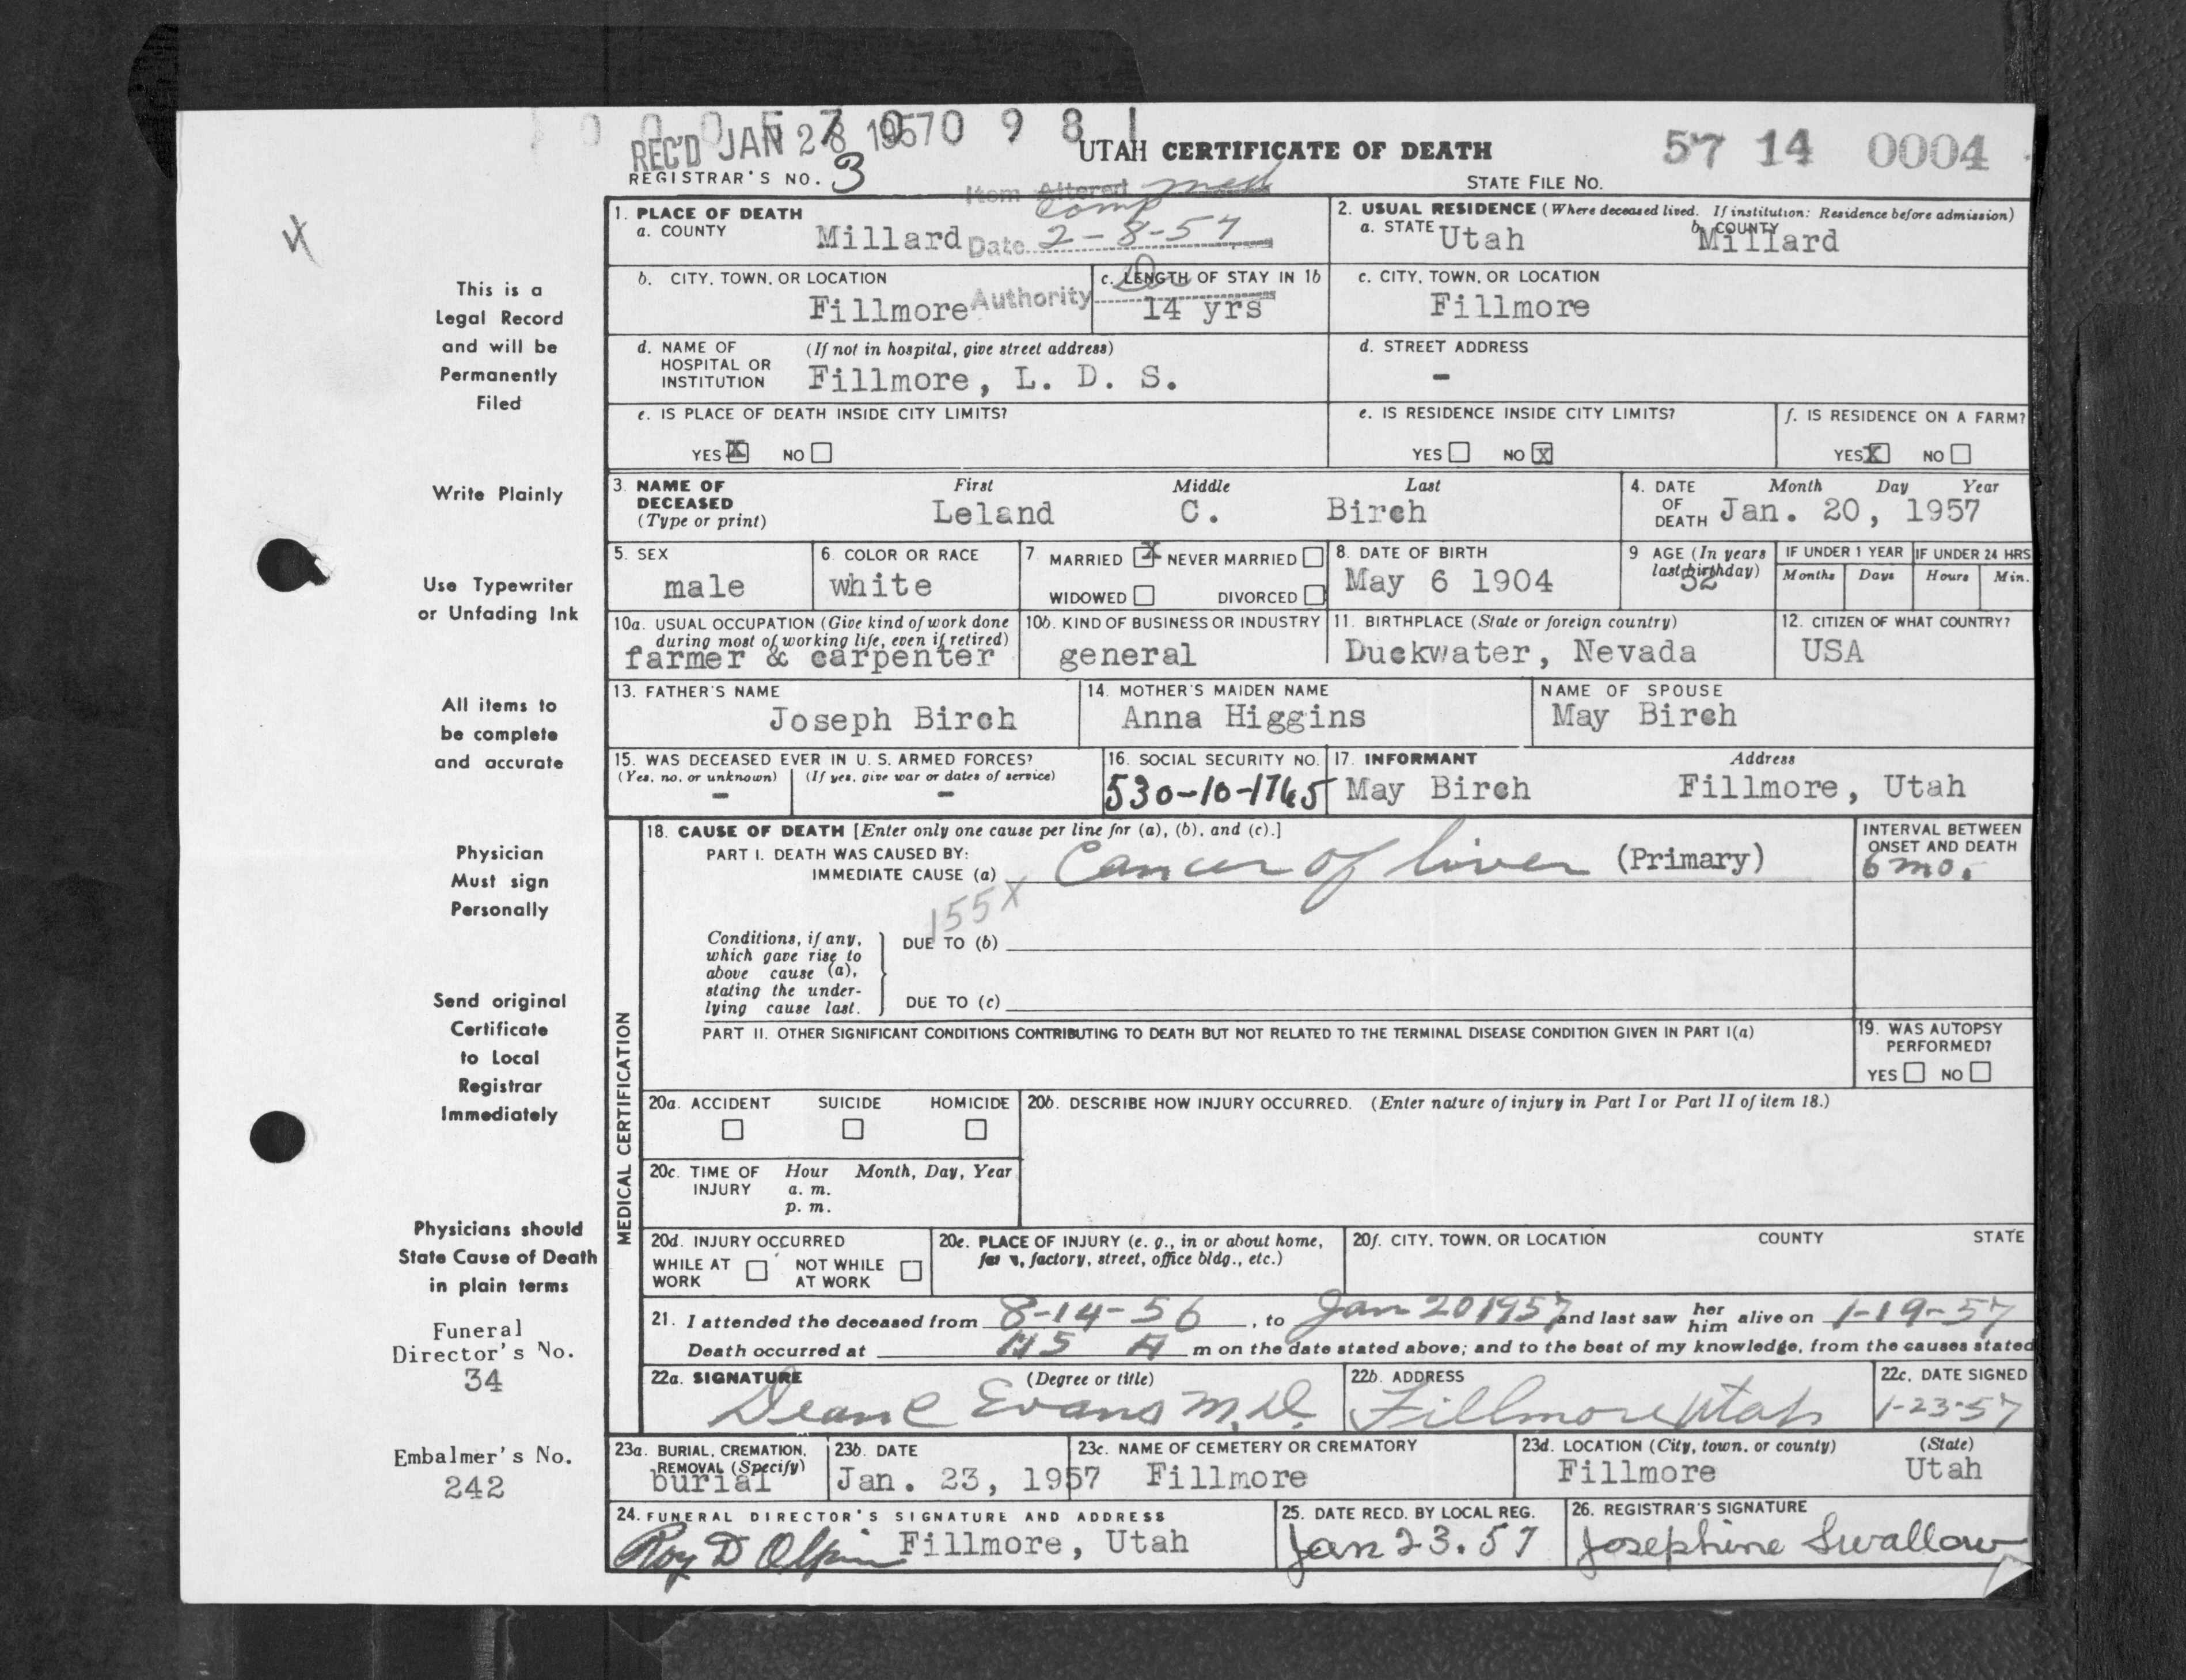 REC'D JAN 28 1957
0 9 8 1
UTAH CERTIFICATE OF DEATH
57 14 0004
REGISTRAR'S NO. 3
STATE FILE NO.
Item Altered med
comp
Date 2-8-57
Authority
1. PLACE OF DEATH
a. COUNTY Millard
2. USUAL RESIDENCE (Where deceased lived. If institution: Residence before admission)
a. STATE Utah b. COUNTY Millard
b. CITY, TOWN, OR LOCATION
Fillmore
c. LENGTH OF STAY IN 1b
14 yrs
c. CITY, TOWN, OR LOCATION
Fillmore
d. NAME OF HOSPITAL OR INSTITUTION (If not in hospital, give street address)
Fillmore, L. D. S.
d. STREET ADDRESS
-
e. IS PLACE OF DEATH INSIDE CITY LIMITS?
YES X NO
e. IS RESIDENCE INSIDE CITY LIMITS?
YES NO X
f. IS RESIDENCE ON A FARM?
YES X NO
3. NAME OF DECEASED (Type or print)
First Middle Last
Leland C. Birch
4. DATE OF DEATH Month Day Year
Jan. 20, 1957
5. SEX
male
6. COLOR OR RACE
white
7 MARRIED X NEVER MARRIED
WIDOWED DIVORCED
8. DATE OF BIRTH
May 6 1904
9 AGE (In years last birthday)
52
IF UNDER 1 YEAR
Months Days
IF UNDER 24 HRS
Hours Min.
10a. USUAL OCCUPATION (Give kind of work done during most of working life, even if retired)
farmer & carpenter
10b. KIND OF BUSINESS OR INDUSTRY
general
11. BIRTHPLACE (State or foreign country)
Duckwater, Nevada
12. CITIZEN OF WHAT COUNTRY?
USA
13. FATHER'S NAME
Joseph Birch
14. MOTHER'S MAIDEN NAME
Anna Higgins
NAME OF SPOUSE
May Birch
15. WAS DECEASED EVER IN U. S. ARMED FORCES?
(Yes, no, or unknown) (If yes, give war or dates of service)
- -
16. SOCIAL SECURITY NO.
530-10-1765
17. INFORMANT Address
May Birch Fillmore, Utah
MEDICAL CERTIFICATION
18. CAUSE OF DEATH [Enter only one cause per line for (a), (b), and (c).]
PART I. DEATH WAS CAUSED BY:
IMMEDIATE CAUSE (a) Cancer of liver (Primary)
INTERVAL BETWEEN ONSET AND DEATH
6 mo.
155X
Conditions, if any, which gave rise to above cause (a), stating the underlying cause last.
DUE TO (b)
DUE TO (c)
PART II. OTHER SIGNIFICANT CONDITIONS CONTRIBUTING TO DEATH BUT NOT RELATED TO THE TERMINAL DISEASE CONDITION GIVEN IN PART I(a)
19. WAS AUTOPSY PERFORMED?
YES NO
20a. ACCIDENT SUICIDE HOMICIDE
20b. DESCRIBE HOW INJURY OCCURRED. (Enter nature of injury in Part I or Part II of item 18.)
20c. TIME OF INJURY Hour Month, Day, Year
a. m.
p. m.
20d. INJURY OCCURRED
WHILE AT WORK NOT WHILE AT WORK
20e. PLACE OF INJURY (e. g., in or about home, farm, factory, street, office bldg., etc.)
20f. CITY, TOWN, OR LOCATION COUNTY STATE
21. I attended the deceased from 8-14-56, to Jan 20 1957 and last saw her him alive on 1-19-57
Death occurred at A m on the date stated above; and to the best of my knowledge, from the causes stated
22a. SIGNATURE (Degree or title)
Dean C Evans M.D.
22b. ADDRESS
Fillmore Utah
22c. DATE SIGNED
1-23-57
23a. BURIAL, CREMATION, REMOVAL (Specify)
burial
23b. DATE
Jan. 23, 1957
23c. NAME OF CEMETERY OR CREMATORY
Fillmore
23d. LOCATION (City, town, or county) (State)
Fillmore Utah
24. FUNERAL DIRECTOR'S SIGNATURE AND ADDRESS
Roy D Olpin Fillmore, Utah
25. DATE RECD. BY LOCAL REG.
Jan 23. 57
26. REGISTRAR'S SIGNATURE
Josephine Swallow
This is a
Legal Record
and will be
Permanently
Filed
Write Plainly
Use Typewriter
or Unfading Ink
All items to
be complete
and accurate
Physician
Must sign
Personally
Send original
Certificate
to Local
Registrar
Immediately
Physicians should
State Cause of Death
in plain terms
Funeral
Director's No.
34
Embalmer's No.
242